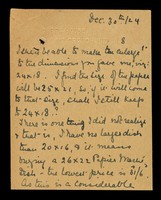 Dec. 30th/29
I shall be able to make the enlargt
to the dimensions you gave me, viz:
24x18. I find the size of the paper
will be 25x21, so, if it will come
to that size, shall I still keep
to 24x18?
There is one thing I did not realize
& that is, I have no larger dish
than 20x16, & it means
buying a 26x22 Papier Maché
dish - the lowest price is 31/6.
As this is a considerable